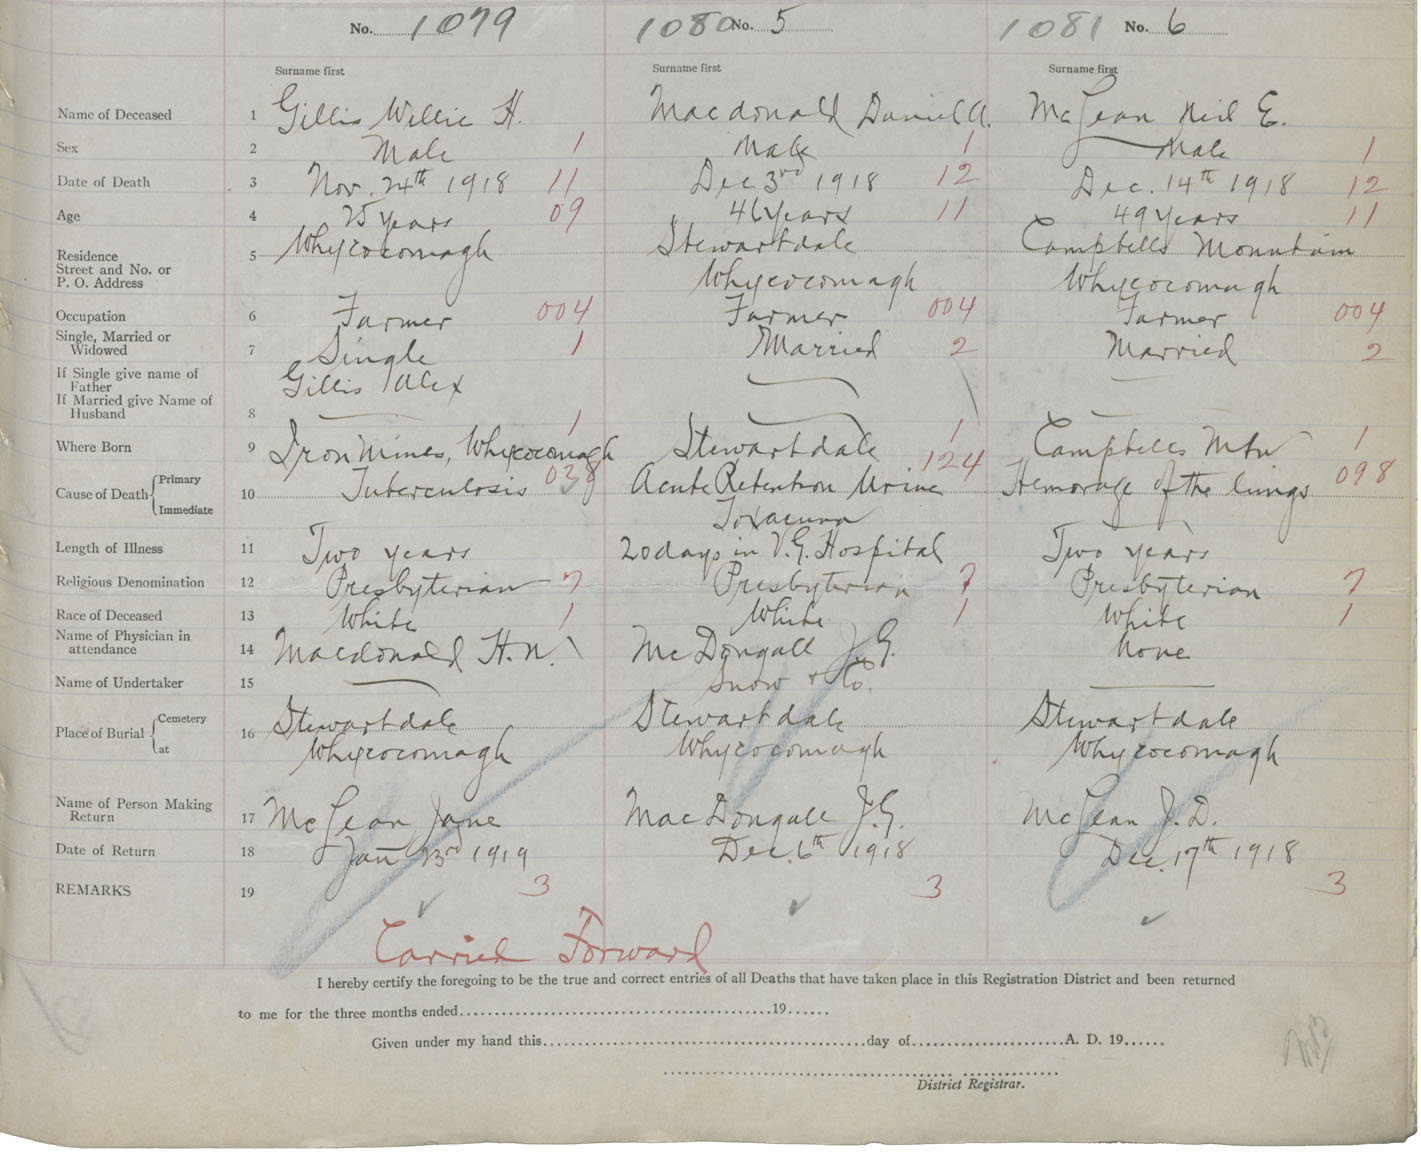 No. 1079 1080 No. 5 1081 No. 6
Surname first Surname first Surname first
Name of Deceased 1 Gillis Willie H. Macdonald Daniel A. McLean Neil E.
Sex 2 Male 1 Male 1 Male 1
Date of Death 3 Nov. 24th 1918 11 Dec 3rd 1918 12 Dec. 14th 1918 12
Age 4 25 years 09 46 years 11 49 years 11
Residence 5 Whycocomagh Stewartdale Campbells Mountain
Street and No. or
P. O. Address Whycocomagh Whycocomagh
Occupation 6 Farmer 004 Farmer 004 Farmer 004
Single, Married or
Widowed 7 Single 1 Married 2 Married 2
If Single give name of
Father Gillis Alex
If Married give Name of
Husband 8
Where Born 9 Iron Mines, Whycocomagh 1 Stewartdale 1 Campbells Mtn 1
Cause of Death Primary
10 Tuberculosis 038 Acute Retention Urine 124 Hemorage of the lungs 098
Immediate
Length of Illness 11 Two years 20 days in V.G. Hospital Two years
Religious Denomination 12 Presbyterian 7 Presbyterian 7 Presbyterian 7
Race of Deceased 13 White 1 White 1 White 1
Name of Physician in
attendance 14 Macdonald H.N. McDongall J.G. None
Name of Undertaker 15 Snow & Co.
Place of Burial Cemetery
16 Stewartdale Stewartdale Stewartdale
at Whycocomagh Whycocomagh Whycocomagh
Name of Person Making
Return 17 McLean Jane MacDongall J.G. McLean J.D.
Date of Return 18 Jan 23rd 1919 Dec. 6th 1918 Dec. 17th 1918
REMARKS 19 3 3 3
Carried Forward
I hereby certify the foregoing to be the true and correct entries of all Deaths that have taken place in this Registration District and been returned
to me for the three months ended 19
Given under my hand this day of A. D. 19
District Registrar.